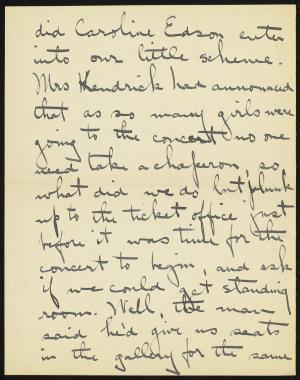 did Caroline Edson enter
into our little scheme.
Mrs Kendrick had announced
that as so many girls were
going to the concert no one
need take a chaperon so
what did we do but plunk
up to the ticket office just
before it was time for the
concert to begin, and ask
if we could get standing
room. Well, the man
said he'd give us seats
in the gallery for the same